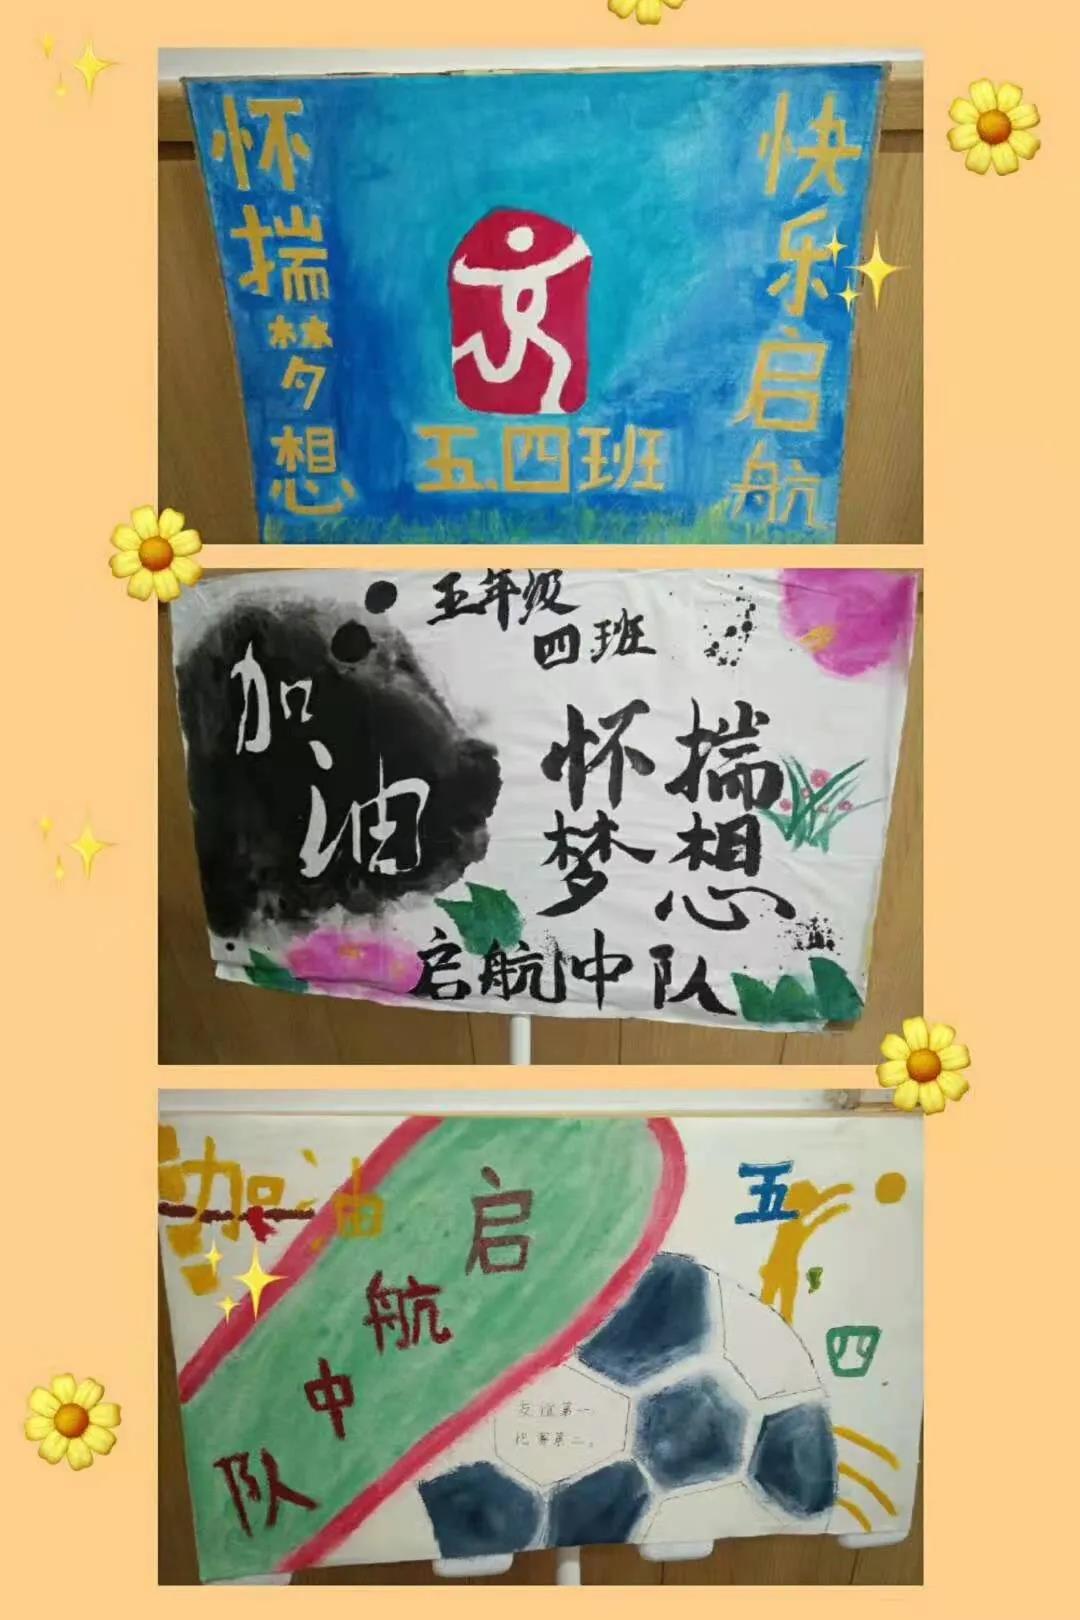 怀揣梦想
快乐启航
五.四班
五年级
四班
加油
怀揣
梦想
启航中队
加油
启航中队
五
四
友谊第一,
比赛第二。